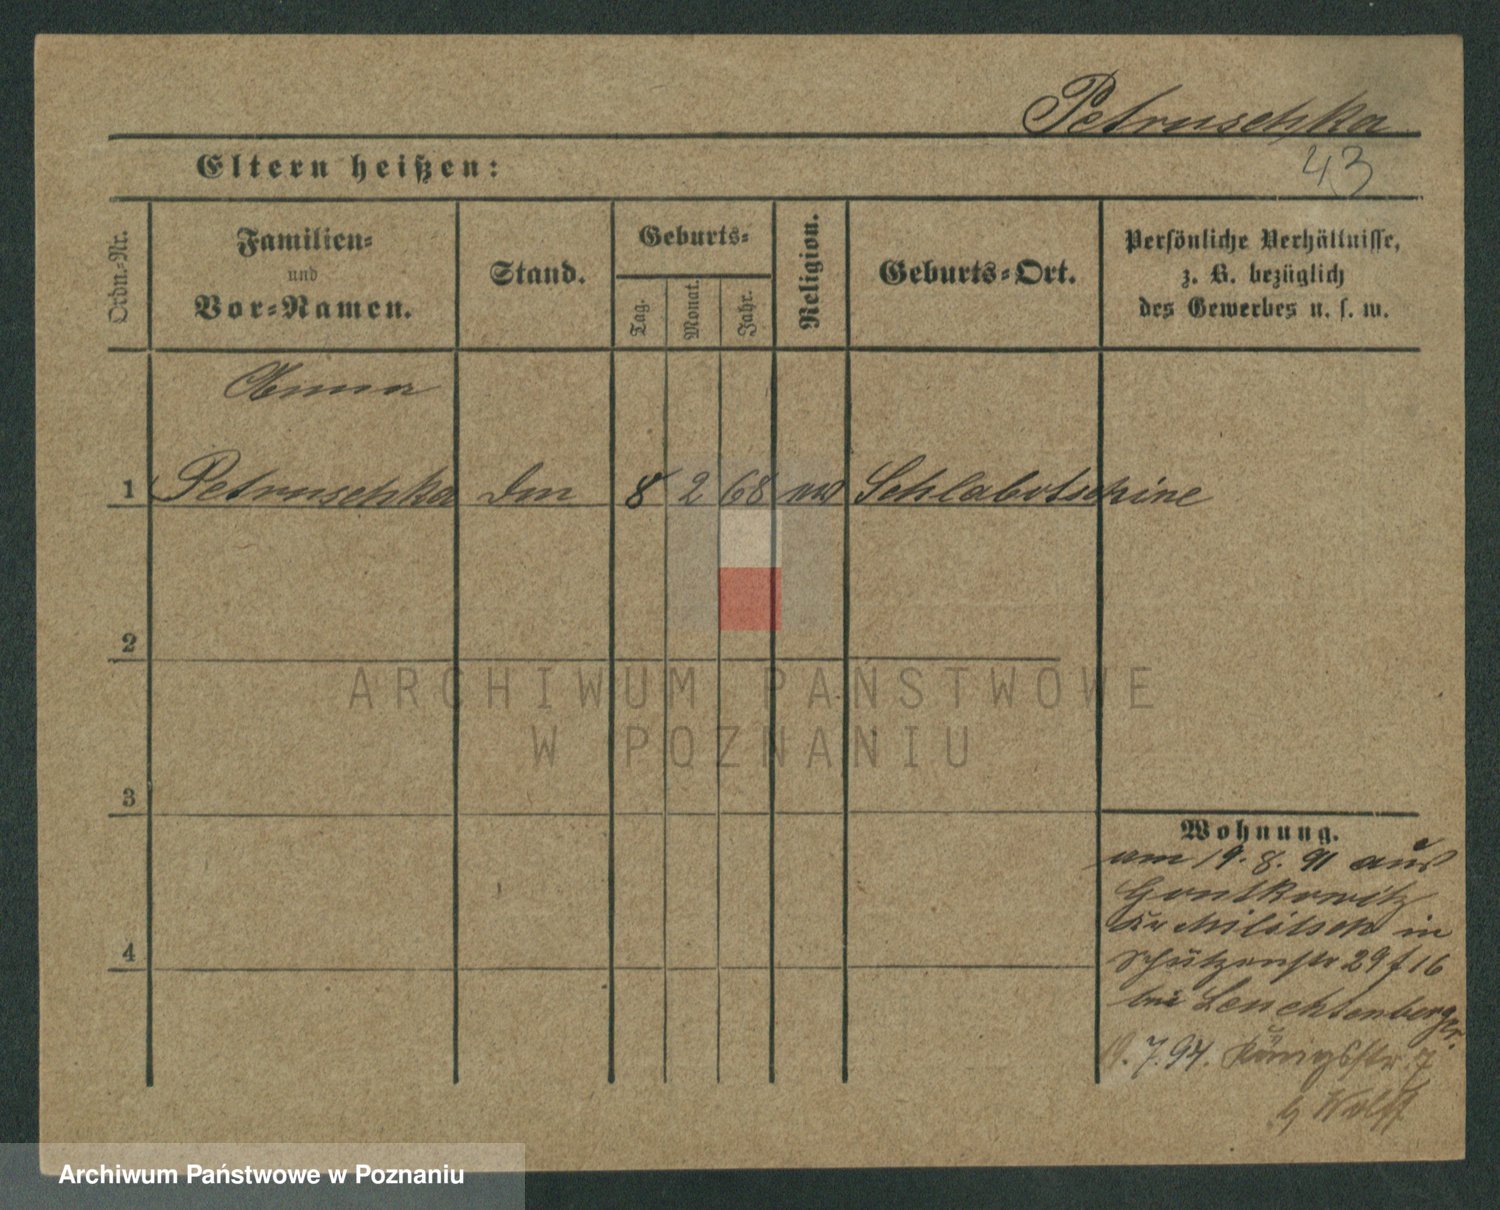 Petruschka
43
Eltern heißen:
Ordn.-Nr.
Familien-
und
Vor-Namen.
Stand.
Geburts-
Tag.
Monat.
Jahr.
Religion.
Geburts-Ort.
Persönliche Verhältnisse,
z. B. bezüglich
des Gewerbes u. s. w.
Anna
1 Petruschka 8 2 68 Schlabotschine
2
3
4
Wohnung.
am 19. 8. 91 aus
Gontkowitz
Kr Militsch in
Schützenstr 29 16
bei Leuchtenberger.
19. 7. 94. Königsstr. 7
b Wolff
ARCHIWUM PAŃSTWOWE
W POZNANIU
Archiwum Państwowe w Poznaniu